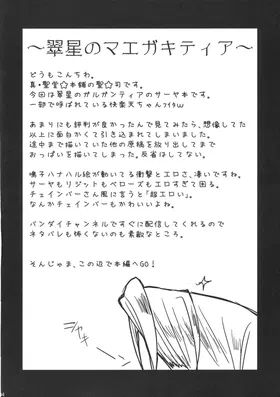 ～翠星のマエガキティア～
どうもこんちわ。
真・聖堂☆本舗の聖☆司です。
今回は翠星のガルガンティアのサーヤ本です。
一部で呼ばれている快楽天ちゃんﾌｲﾀｗ
あまりにも評判が良かったんで見てみたら、想像してた
以上に面白かくて引き込まれてしまいました。
途中まで描いていた他の原稿を放り出してまで
おっぱいを描いてしまこした。反省はしてない。
鳴子ハナハル絵が動いてる衝撃とエロさ、凄いですね。
サーヤもリジットもベローズもエロすぎて困る。
チェインバーさん風に言うと「超エロい」。
なんかチェインバーもかわいいよね。
バンダイチャンネルですぐに配信してくれるので
ネタバレも怖くないのも素敵なところ。
そんじゃま、この辺で本編へGO！
シャキ